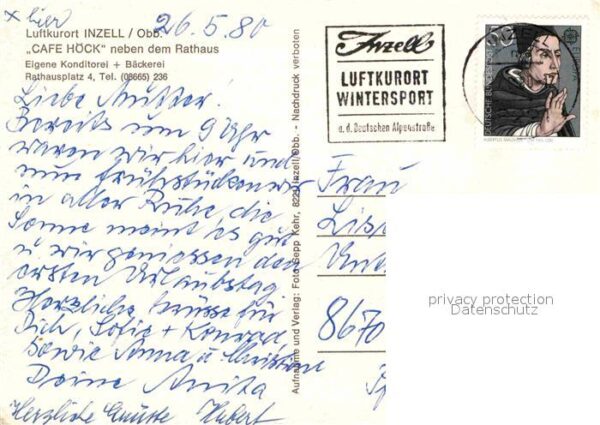 x hier
26.5.80
Luftkurort INZELL / Obb.
„CAFE HÖCK" neben dem Rathaus
Eigene Konditorei + Bäckerei
Rathausplatz 4, Tel. (08665) 236
Liebe Mutter!
Bereits um 9 Uhr
waren wir hier und
nun frühstücken wir
in aller Ruhe, die
Sonne meint es gut
u. wir geniessen den
ersten Urlaubstag.
Herzliche Grüsse für
Dich, Sofie + Konrad,
sowie Anna u. Christian
Deine Anita
Herzliche Grüsse Hubert
Aufnahme und Verlag: Foto Sepp Kehr, 8221 Inzell/Obb. - Nachdruck verboten
Inzell
LUFTKURORT
WINTERSPORT
a.d. Deutschen Alpenstraße
DEUTSCHE BUNDESPOST
Frau
8670
privacy protection
Datenschutz